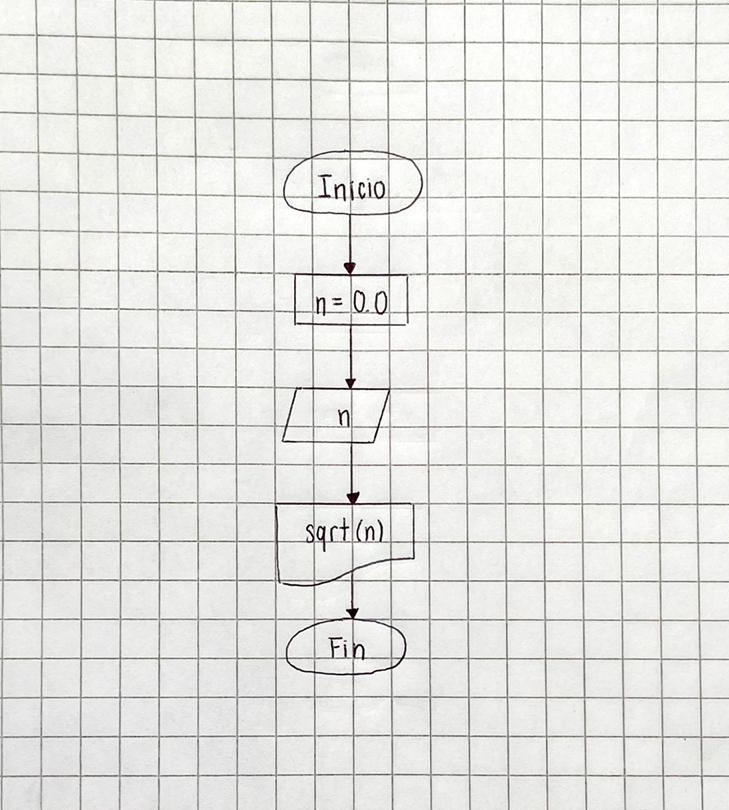 Inicio
n = 0.0
n
sqrt(n)
Fin